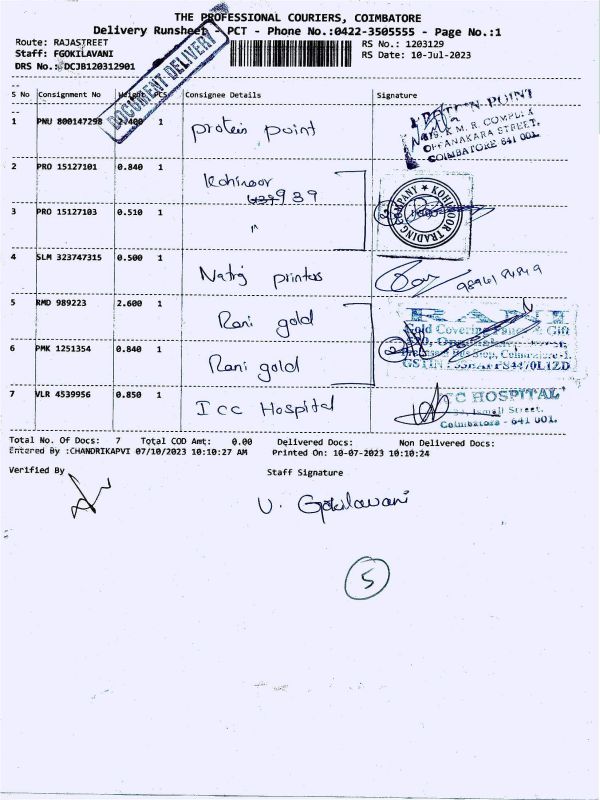 THE PROFESSIONAL COURIERS, COIMBATORE
Delivery Runsheet - PCT - Phone No.:0422-3505555 - Page No.:1
Route: RAJASTREET
RS No.: 1203129
Staff: FGOKILAVANI
RS Date: 10-Jul-2023
DRS No.: DCJB120312901
DOCUMENT DELIVERY
S No Consignment No Weight PCS Consignee Details Signature
1 PNU 800147298 2.400 1 protein point
PROTEIN POINT
K.M.R. COMPLEX
OPPANAKARA STREET,
COIMBATORE 641 001.
2 PRO 15127101 0.840 1 Kohinoor
939
KOHINOOR TRADING COMPANY
3 PRO 15127103 0.510 1 "
4 SLM 323747315 0.500 1 Natraj printers
5 RMD 989223 2.600 1 Rani gold
RANI
Gold Covering Fancy & Gift
6 PMK 1251354 0.840 1 Rani gold
Coimbatore-1.
7 VLR 4539956 0.850 1 ICC Hospital
ICC HOSPITAL
Ismail Street,
Coimbatore - 641 001.
Total No. Of Docs: 7 Total COD Amt: 0.00 Delivered Docs: Non Delivered Docs:
Entered By :CHANDRIKAPVI 07/10/2023 10:10:27 AM Printed On: 10-07-2023 10:10:24
Verified By Staff Signature
V. Gokilavani
5